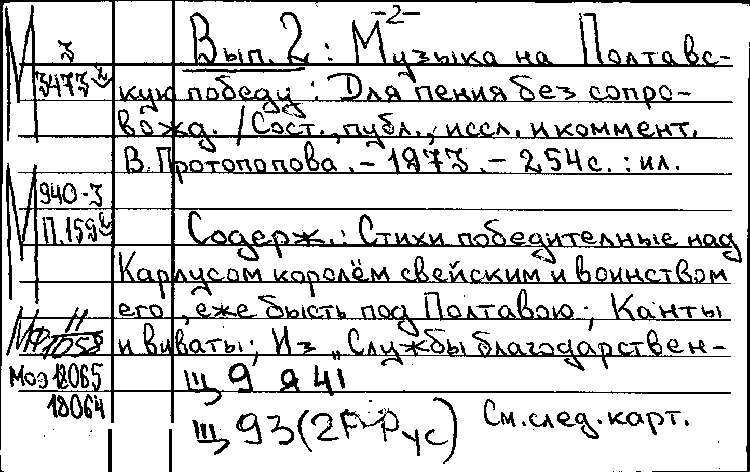 -2-
Вып. 2 : Музыка на Полтавс-
кую победу : Для пения без сопро-
вожд. / Сост., публ., иссл. и коммент.
В. Протопопова. - 1973. - 254 с. : ил.
Содерж.: Стихи победительные над
Карлусом королём свейским и воинством
его, еже бысть под Полтавою; Канты
и виваты; Из „Службы благодарствен-
Щ 9 я 41
Щ 93(2Р-Рус)
См. след. карт.
М З
3473
М 940-3
П.159
Моэ 18065
18064